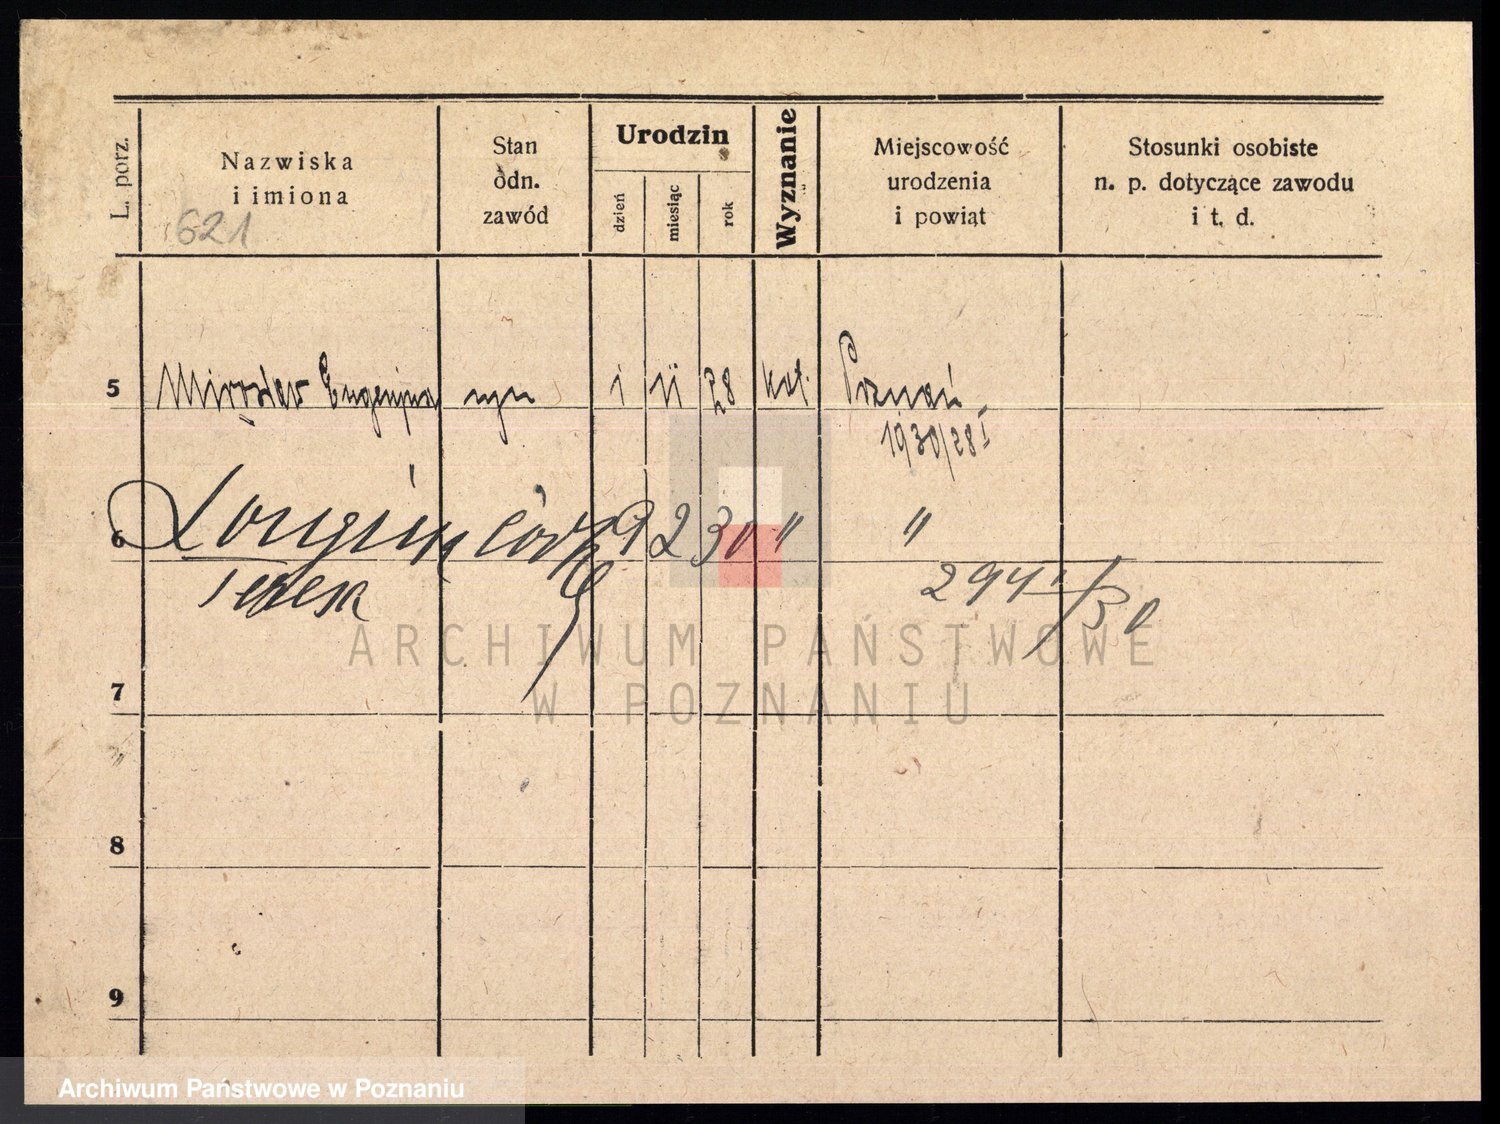 L. porz.
Nazwiska
i imiona
621
Stan
odn.
zawód
Urodzin
dzień
miesiąc
rok
Wyznanie
Miejscowość
urodzenia
i powiąt
Stosunki osobiste
n. p. dotyczące zawodu
i t. d.
5 Mirosław Eugenjusz syn 1 11 28 kat. Poznań
1930/28 I
6 córka 9 2 30 " "
Teresa
294 /30
7
8
9
ARCHIWUM PAŃSTWOWE
W POZNANIU
Archiwum Państwowe w Poznaniu